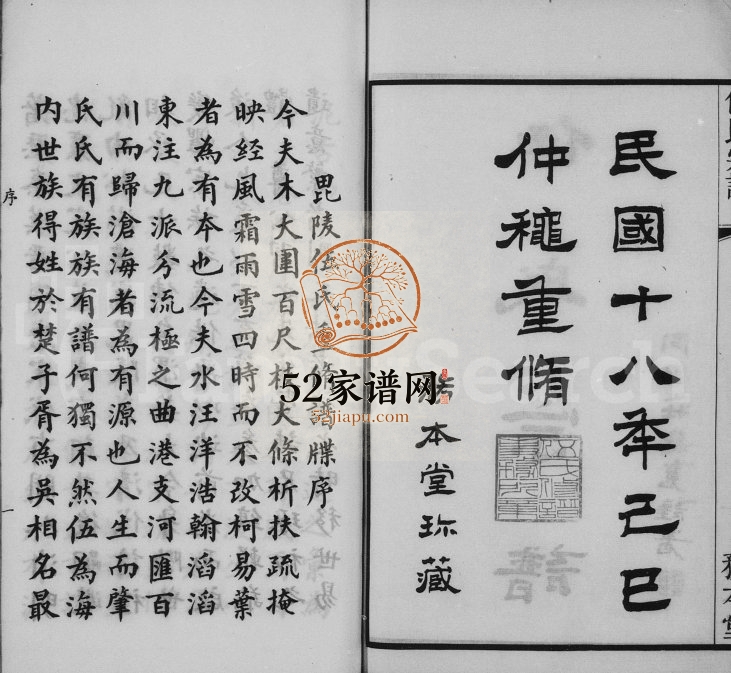 民國十八年己巳
仲穐重脩
本堂珍藏
毘陵伍氏重修譜牒序
今夫木大圍百尺枝大條析扶疏掩
映经風霜雨雪四時而不改柯易葉
者為有本也今夫水汪洋浩翰滔滔
東注九派分流極之曲港支河匯百
川而歸滄海者為有源也人生而肇
氏氏有族族有譜何獨不然伍為海
内世族得姓於楚子胥為吳相名最
序
一
52家谱网
52jiapu.com